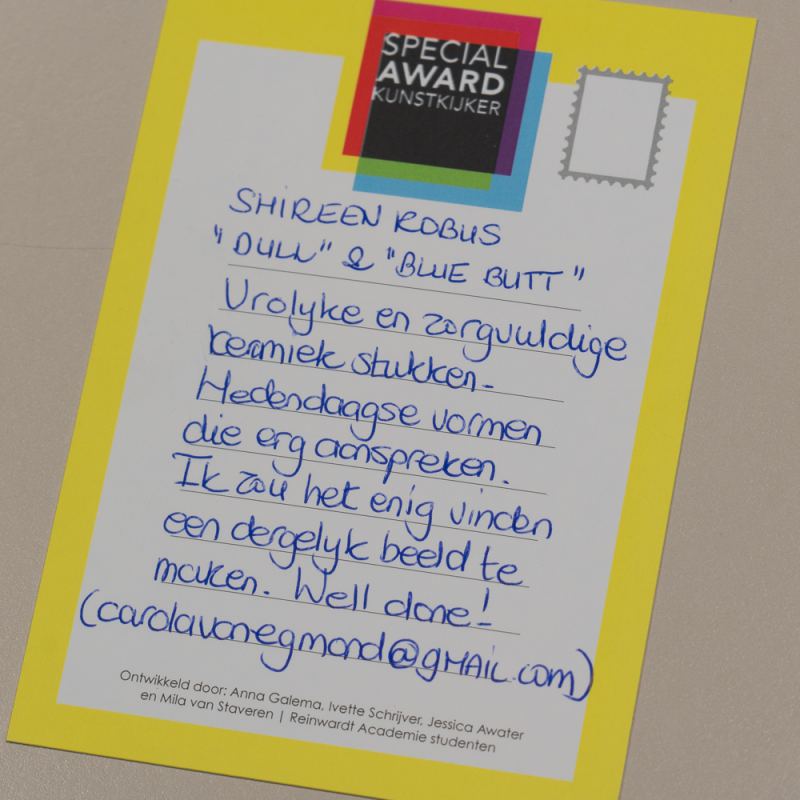 SPECIAL
AWARD
KUNSTKIJKER
SHIREEN ROBUS
"DULL" & "BLUE BUTT"
Vrolyke en zorgvuldige
keramiek stukken.
Hedendaagse vormen
die erg aanspreken.
Ik zou het enig vinden
een dergelyk beeld te
maken. Well done!
(carolavanegmond@gmail.com)
Ontwikkeld door: Anna Galema, Ivette Schrijver, Jessica Awater
en Mila van Staveren | Reinwardt Academie studenten